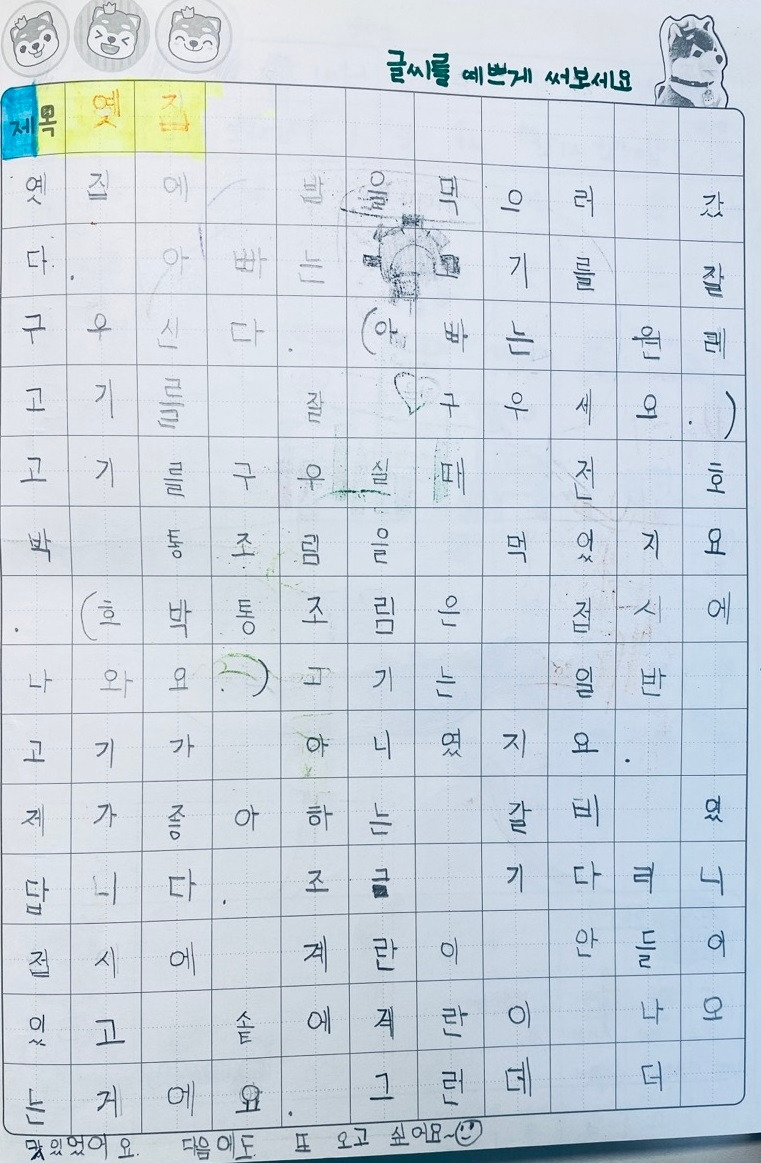 글씨를 예쁘게 써보세요
제목 옛집
옛집에 밥을 먹으러 갔
다. 아빠는 고기를 잘
구우신다. (아빠는 원레
고기를 잘 구우세요.)
고기를 구우실때 전 호
박 통조림을 먹었지요
. (호박통조림은 접시에
나와요.) 고기는 일반
고기가 아니였지요.
제가좋아하는 갈비 였
답니다. 조금 기다리니
접시에 계란이 안들어
있고 솥에계란이 나오
는게에요. 그런데 더
맜있었어요. 다음에도 또 오고 싶어요~